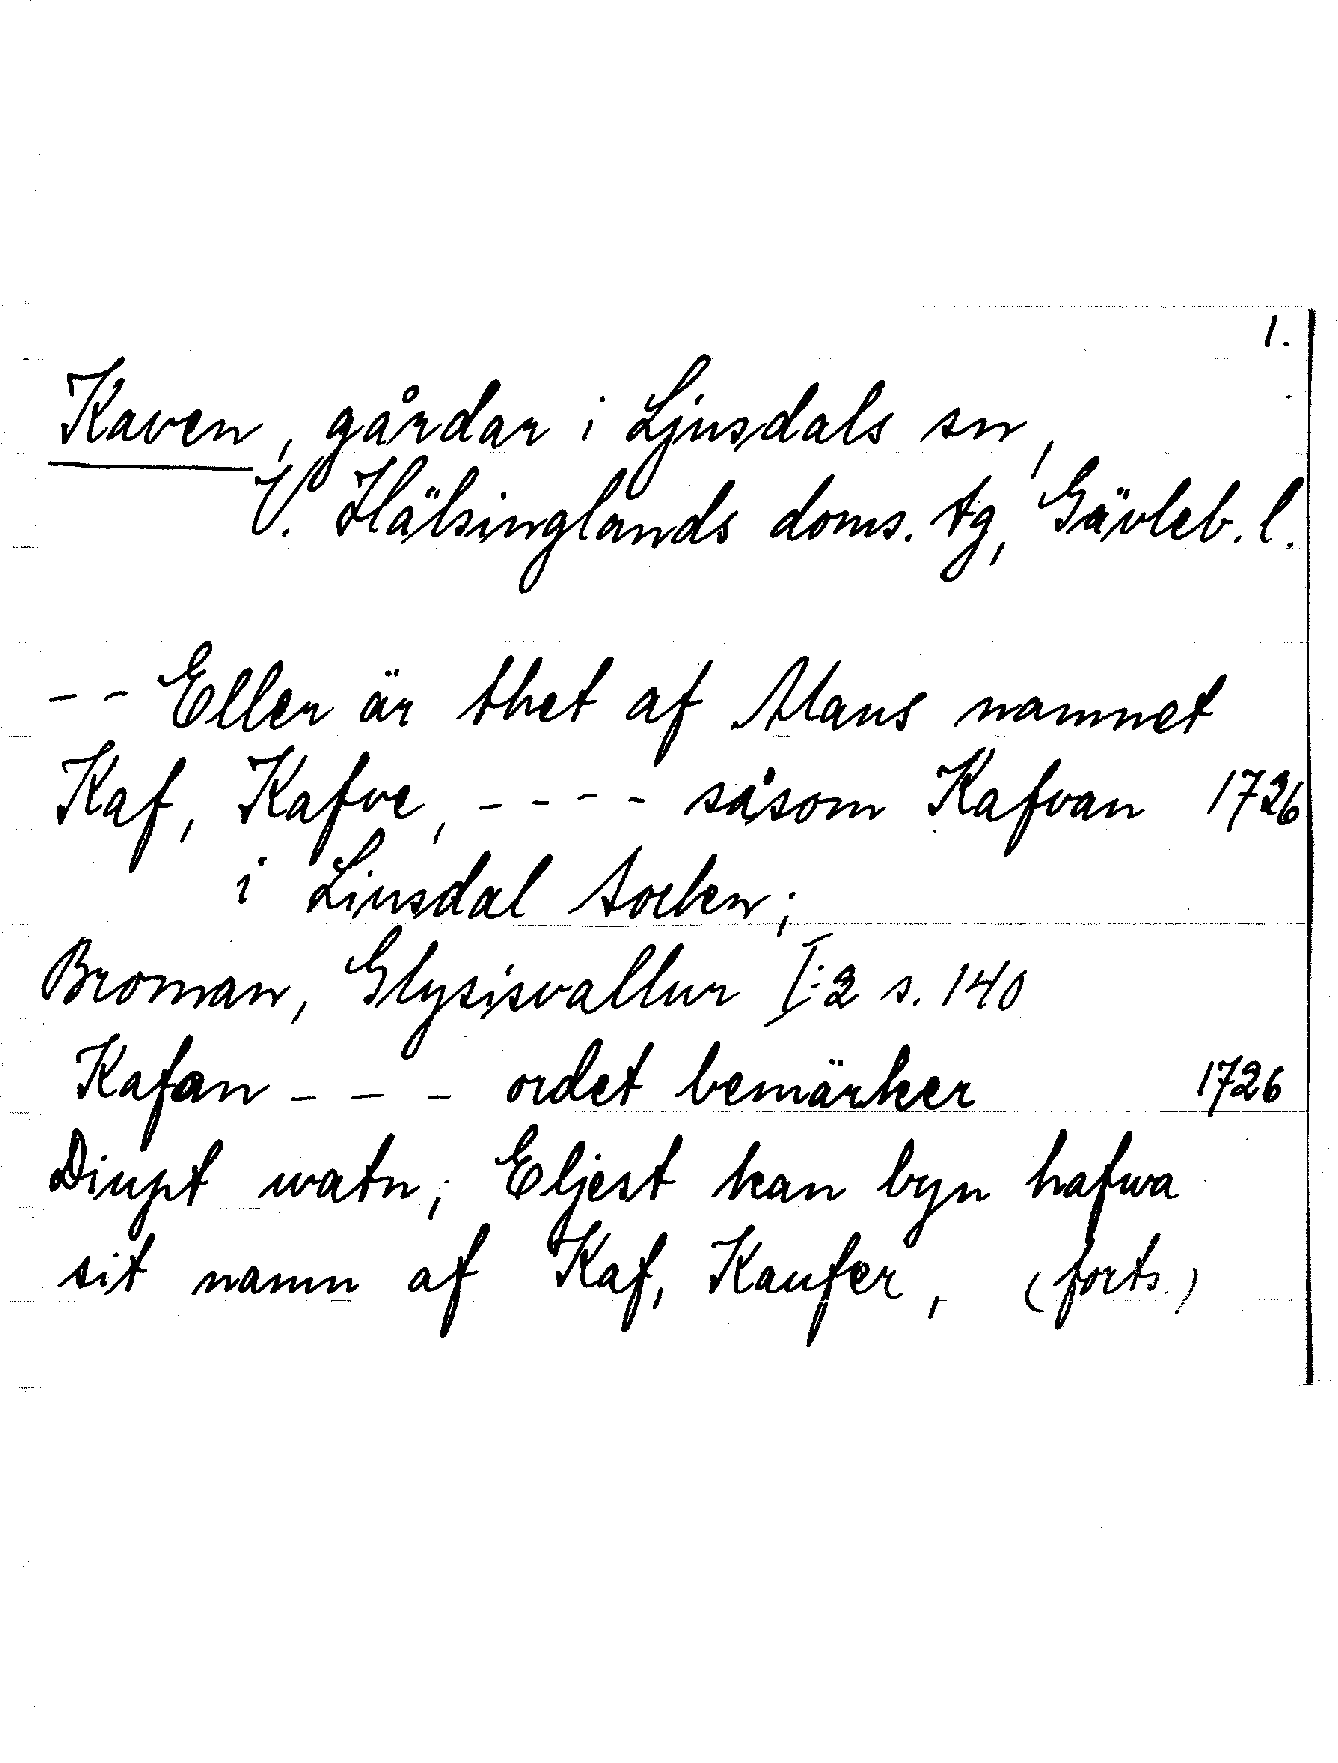 1.
Kaven, gårdar i Ljusdals sn,
V. Hälsinglands doms. tg, Gävleb. l.
-- Eller är thet af Mans namnet
Kaf, Kafve, ---- såsom Kafvan 1726
i Liusdal socken;
Broman, Glysisvallur I:2 s. 140
Kafan --- ordet bemärker 1726
Diupt watn; Eljest kan byn hafwa
sit namn af Kaf, Kaufer, (forts.)